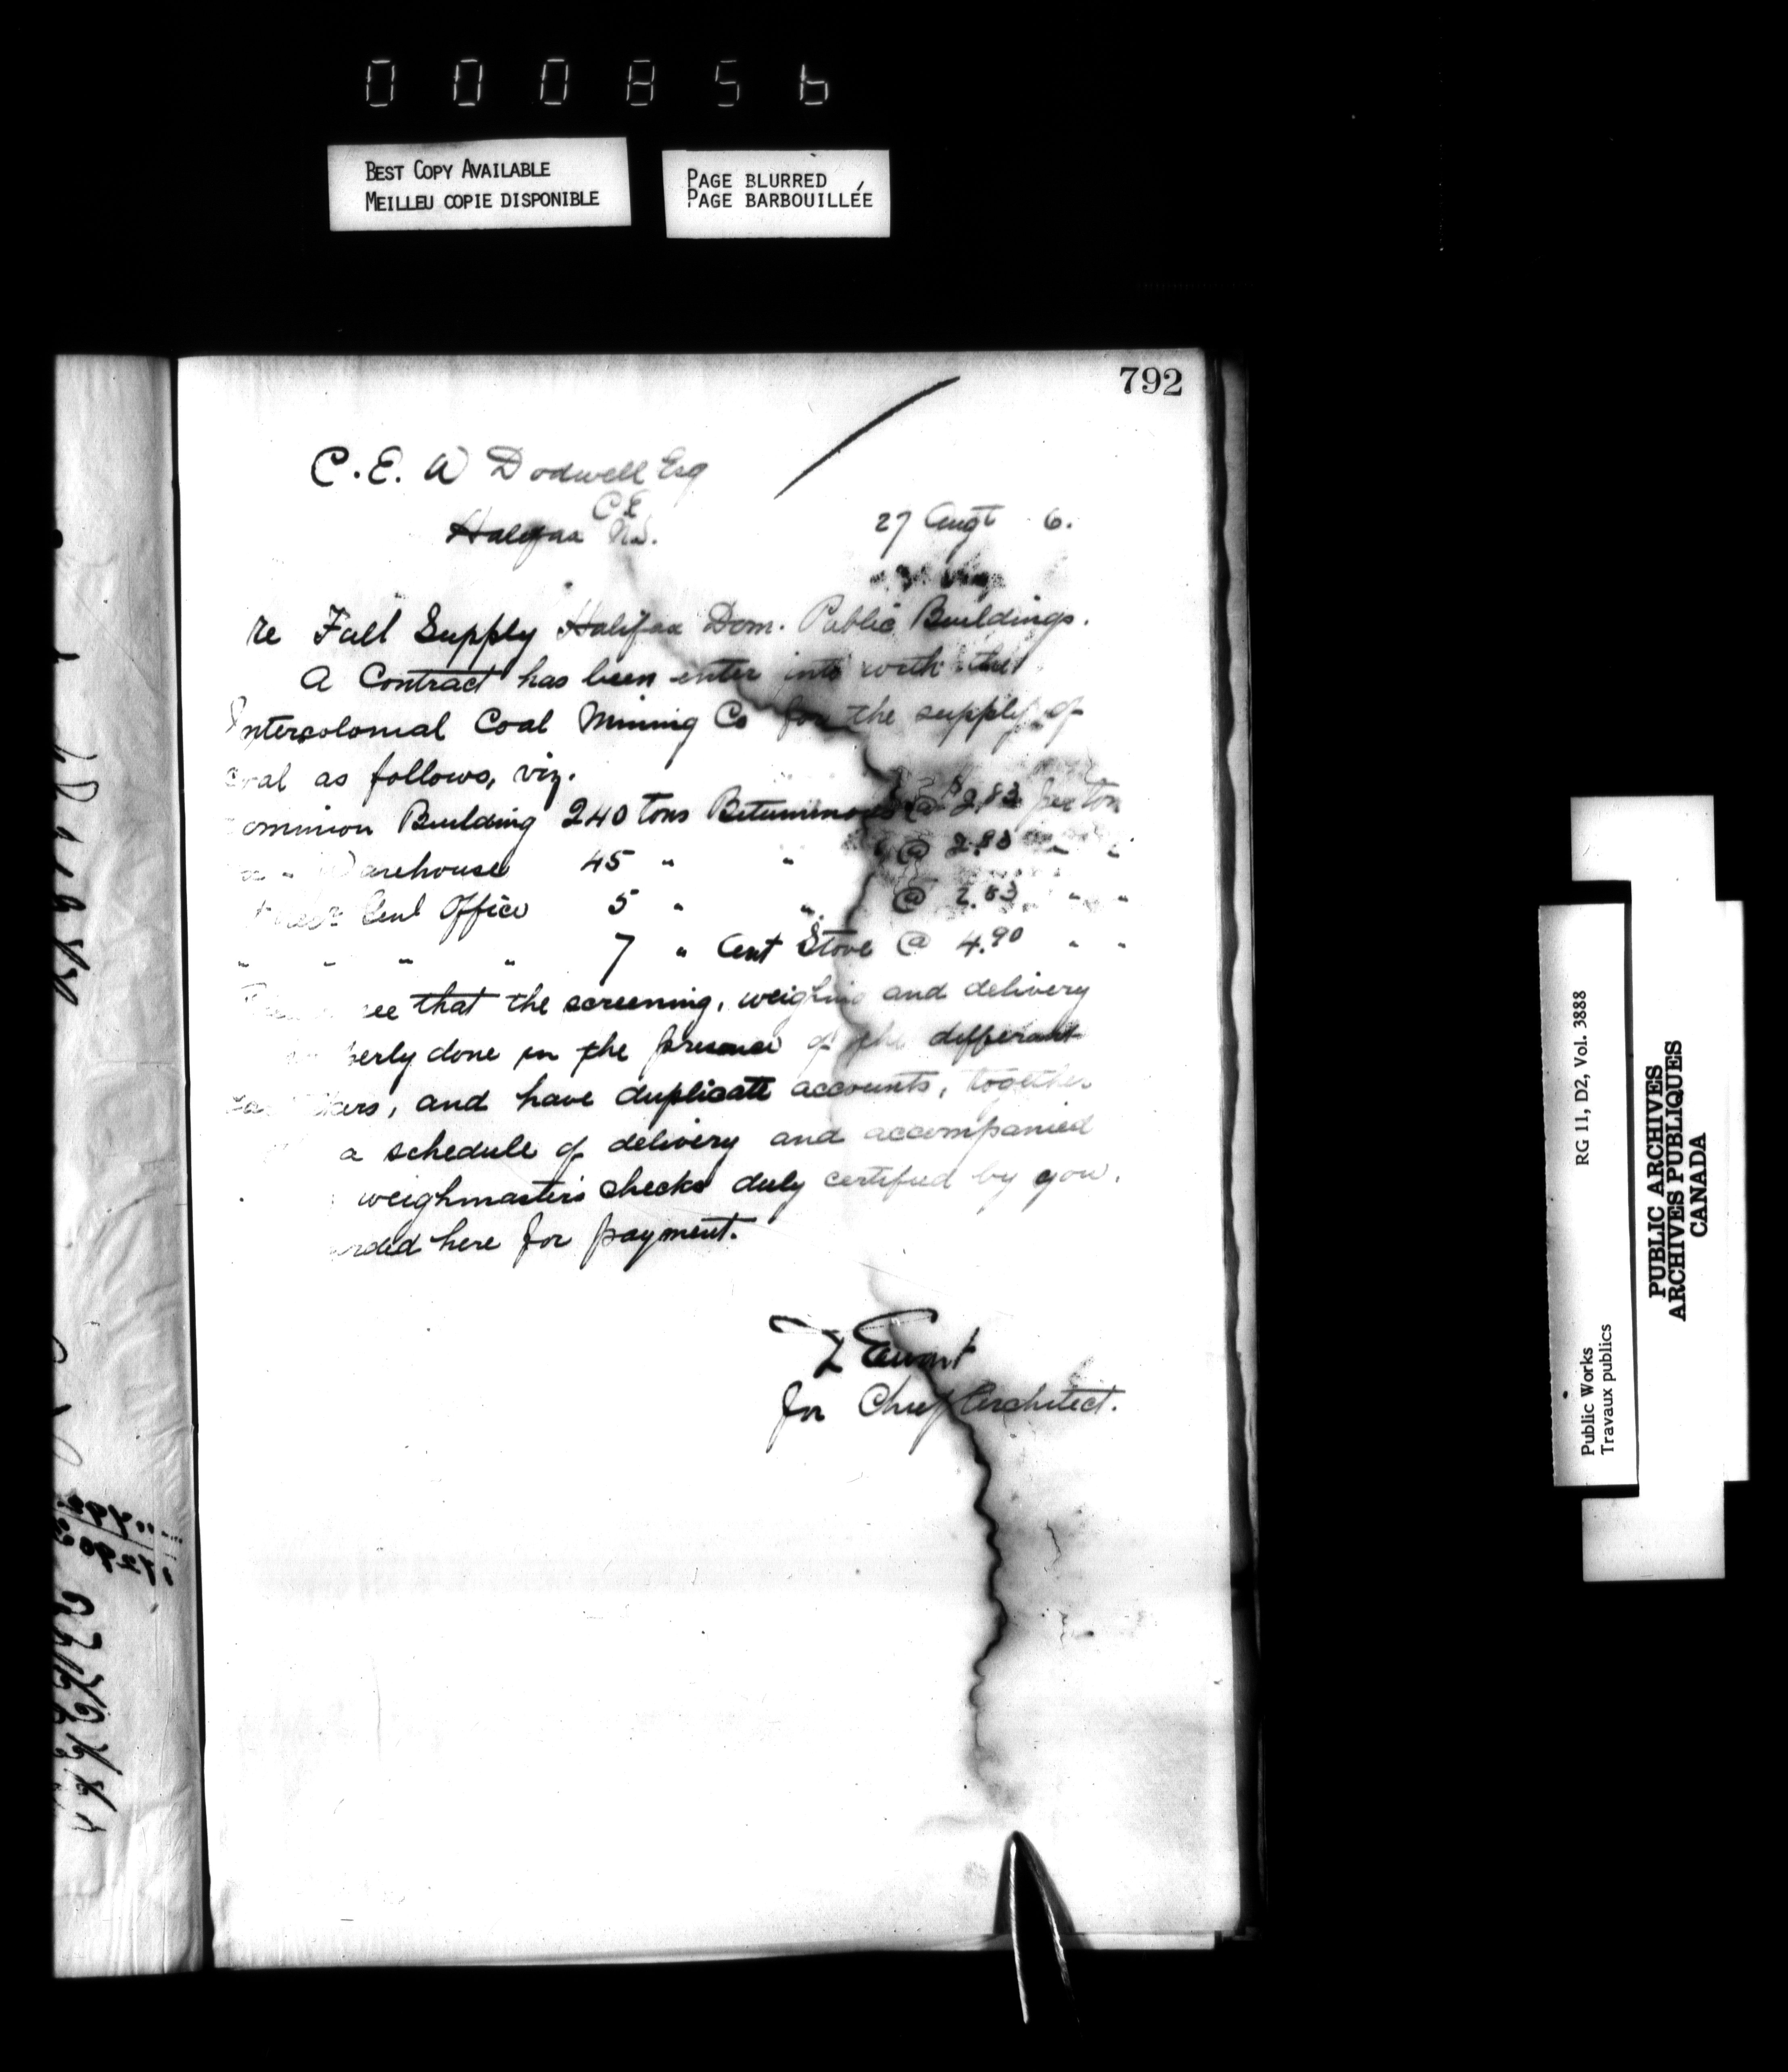 000856
BEST COPY AVAILABLE
MEILLEU COPIE DISPONIBLE
PAGE BLURRED
PAGE BARBOUILLÉE
792
C. E. W Dodwell Esq
C E
Halifax N.S.
27 Augt 6.
re Fall Supply Halifax Dom. Public Buildings.
A Contract has been enter into with the
Intercolonial Coal Mining Co for the supply of
Coal as follows, viz.
ominion Building 240 tons Bituminous @ $2.83 per ton
" " Warehouse 45 " " @ 2.83 " "
Genl Office 5 " " @ 2.83 " "
" " " " 7 " Cent Stove @ 4.90 " "
see that the screening, weighing and delivery
perly done in the presence of the differant
kers, and have duplicate accounts, together
a schedule of delivery and accompanied
weighmaster's checks duly certified by you,
arded here for payment.
Ewart
for Chief Architect.
Public Works
Travaux publics
RG 11, D2, Vol. 3888
PUBLIC ARCHIVES
ARCHIVES PUBLIQUES
CANADA